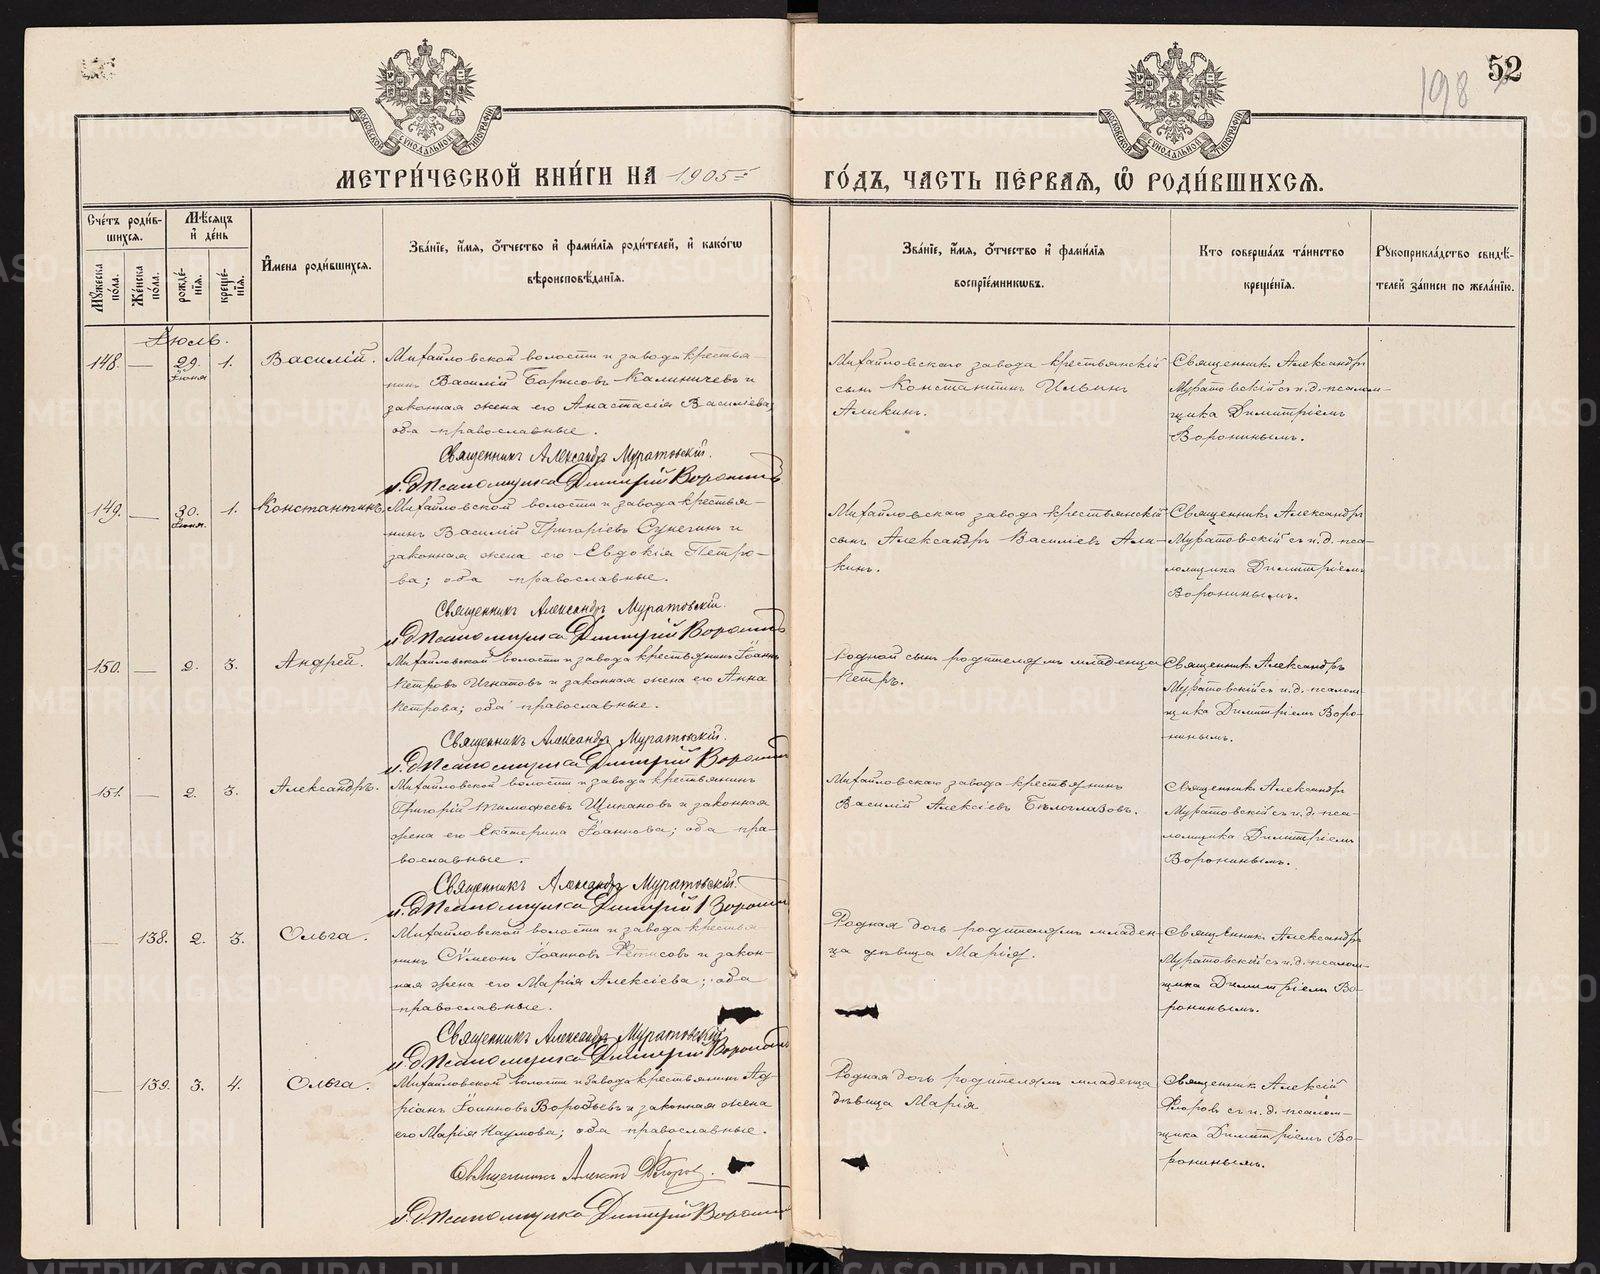 52
198
МОСКОВСКОЙ СѴНОДАЛЬНОЙ ТИПОГРАФІИ
МОСКОВСКОЙ СѴНОДАЛЬНОЙ ТИПОГРАФІИ
МЕТРИ́ЧЕСКОЙ КНИ́ГИ НА 1905 г.
ГО́ДЪ, ЧАСТЬ ПЕ́РВАѦ, Ѡ҆ РОДИ́ВШИХСѦ.
Сче́тъ роди́в-
шихсѧ.
Мѣ́сѧцъ
и҆ де́нь
Му́жеска по́ла.
Же́нска по́ла.
рожде́-нїѧ.
креще́-нїѧ.
И҆мена роди́вшихсѧ.
Зва́нїе, и҆́мѧ, ѻ҆́тчество и҆ фами́лїѧ роди́телей, и҆ како́гѡ
вѣроисповѣ́данїѧ.
Зва́нїе, и҆́мѧ, ѻ҆́тчество и҆ фами́лїѧ
воспрїе́мникѡвъ.
Кто соверша́лъ та́инство
креще́нїѧ.
Рꙋкоприкла́дство свидѣ́-
телей за́писи по жела́нїю.
Іюль.
148. — 29. Іюня 1. Василій.
Михайловской волости и завода крестья-
нинъ Василій Борисовъ Калиничевъ и
законная жена его Анастасія Василіева;
оба православные.
Священникъ Александръ Муратовскій.
и.д.псаломщика Димитрій Воронинъ
Михайловскаго завода крестьянскій
сынъ Константинъ Ильинъ
Аликинъ.
Священникъ Александръ
Муратовскій съ и.д. псалом-
щика Димитріемъ
Воронинымъ.
149. — 30. Іюня. 1. Константинъ.
Михайловской волости и завода крестья-
нинъ Василій Григоріевъ Сунегинъ и
законная жена его Евдокія Петро-
ва; оба православные.
Священникъ Александръ Муратовскій.
и.д.псаломщика Димитрій Воронинъ
Михайловскаго завода крестьянскій
сынъ Александръ Василіевъ Али-
кинъ.
Священникъ Александръ
Муратовскій съ и.д. пса-
ломщика Димитріемъ
Воронинымъ.
150. — 2. 3. Андрей.
Михайловской волости и завода крестьянинъ Іоаннъ
Петровъ Игнатовъ и законная жена его Анна
Петрова; оба православные.
Священникъ Александръ Муратовскій.
и.д.псаломщика Димитрій Воронинъ
Родной сынъ родителямъ младенца
Петръ.
Священникъ Александръ
Муратовскій съ и.д. псалом-
щика Димитріемъ Воро-
нинымъ.
151. — 2. 3. Александръ.
Михайловской волости и завода крестьянинъ
Григорій Тимофеевъ Щипановъ и законная
жена его Екатерина Іоаннова; оба пра-
вославные.
Священникъ Александръ Муратовскій.
и.д.псаломщика Димитрій Воронинъ
Михайловскаго завода крестьянинъ
Василій Алексіевъ Бѣлоглазовъ.
Священникъ Александръ
Муратовскій съ и.д. пса-
ломщика Димитріемъ
Воронинымъ.
— 138. 2. 3. Ольга.
Михайловской волости и завода крестья-
нинъ Сѵмеонъ Іоанновъ Фетисовъ и закон-
ная жена его Марія Алексіева; оба
православные.
Священникъ Александръ Муратовскій
и.д.псаломщика Димитрій Воронинъ
Родная дочь родителямъ младен-
ца дѣвица Марія.
Священникъ Александръ
Муратовскій съ и.д. псалом-
щика Димитріемъ Во-
ронинымъ.
— 139. 3. 4. Ольга.
Михайловской волости и завода крестьянинъ Ад-
ріанъ Іоанновъ Воробьевъ и законная жена
его Марія Наумова; оба православные.
Священникъ Алексій Флоровъ.
и.д.псаломщика Димитрій Воронинъ
Родная дочь родителямъ младенца
дѣвица Марія
Священникъ Алексій
Флоровъ съ и.д. псалом-
щика Димитріемъ Во-
ронинымъ.
METRIKI.GASO-URAL.RU